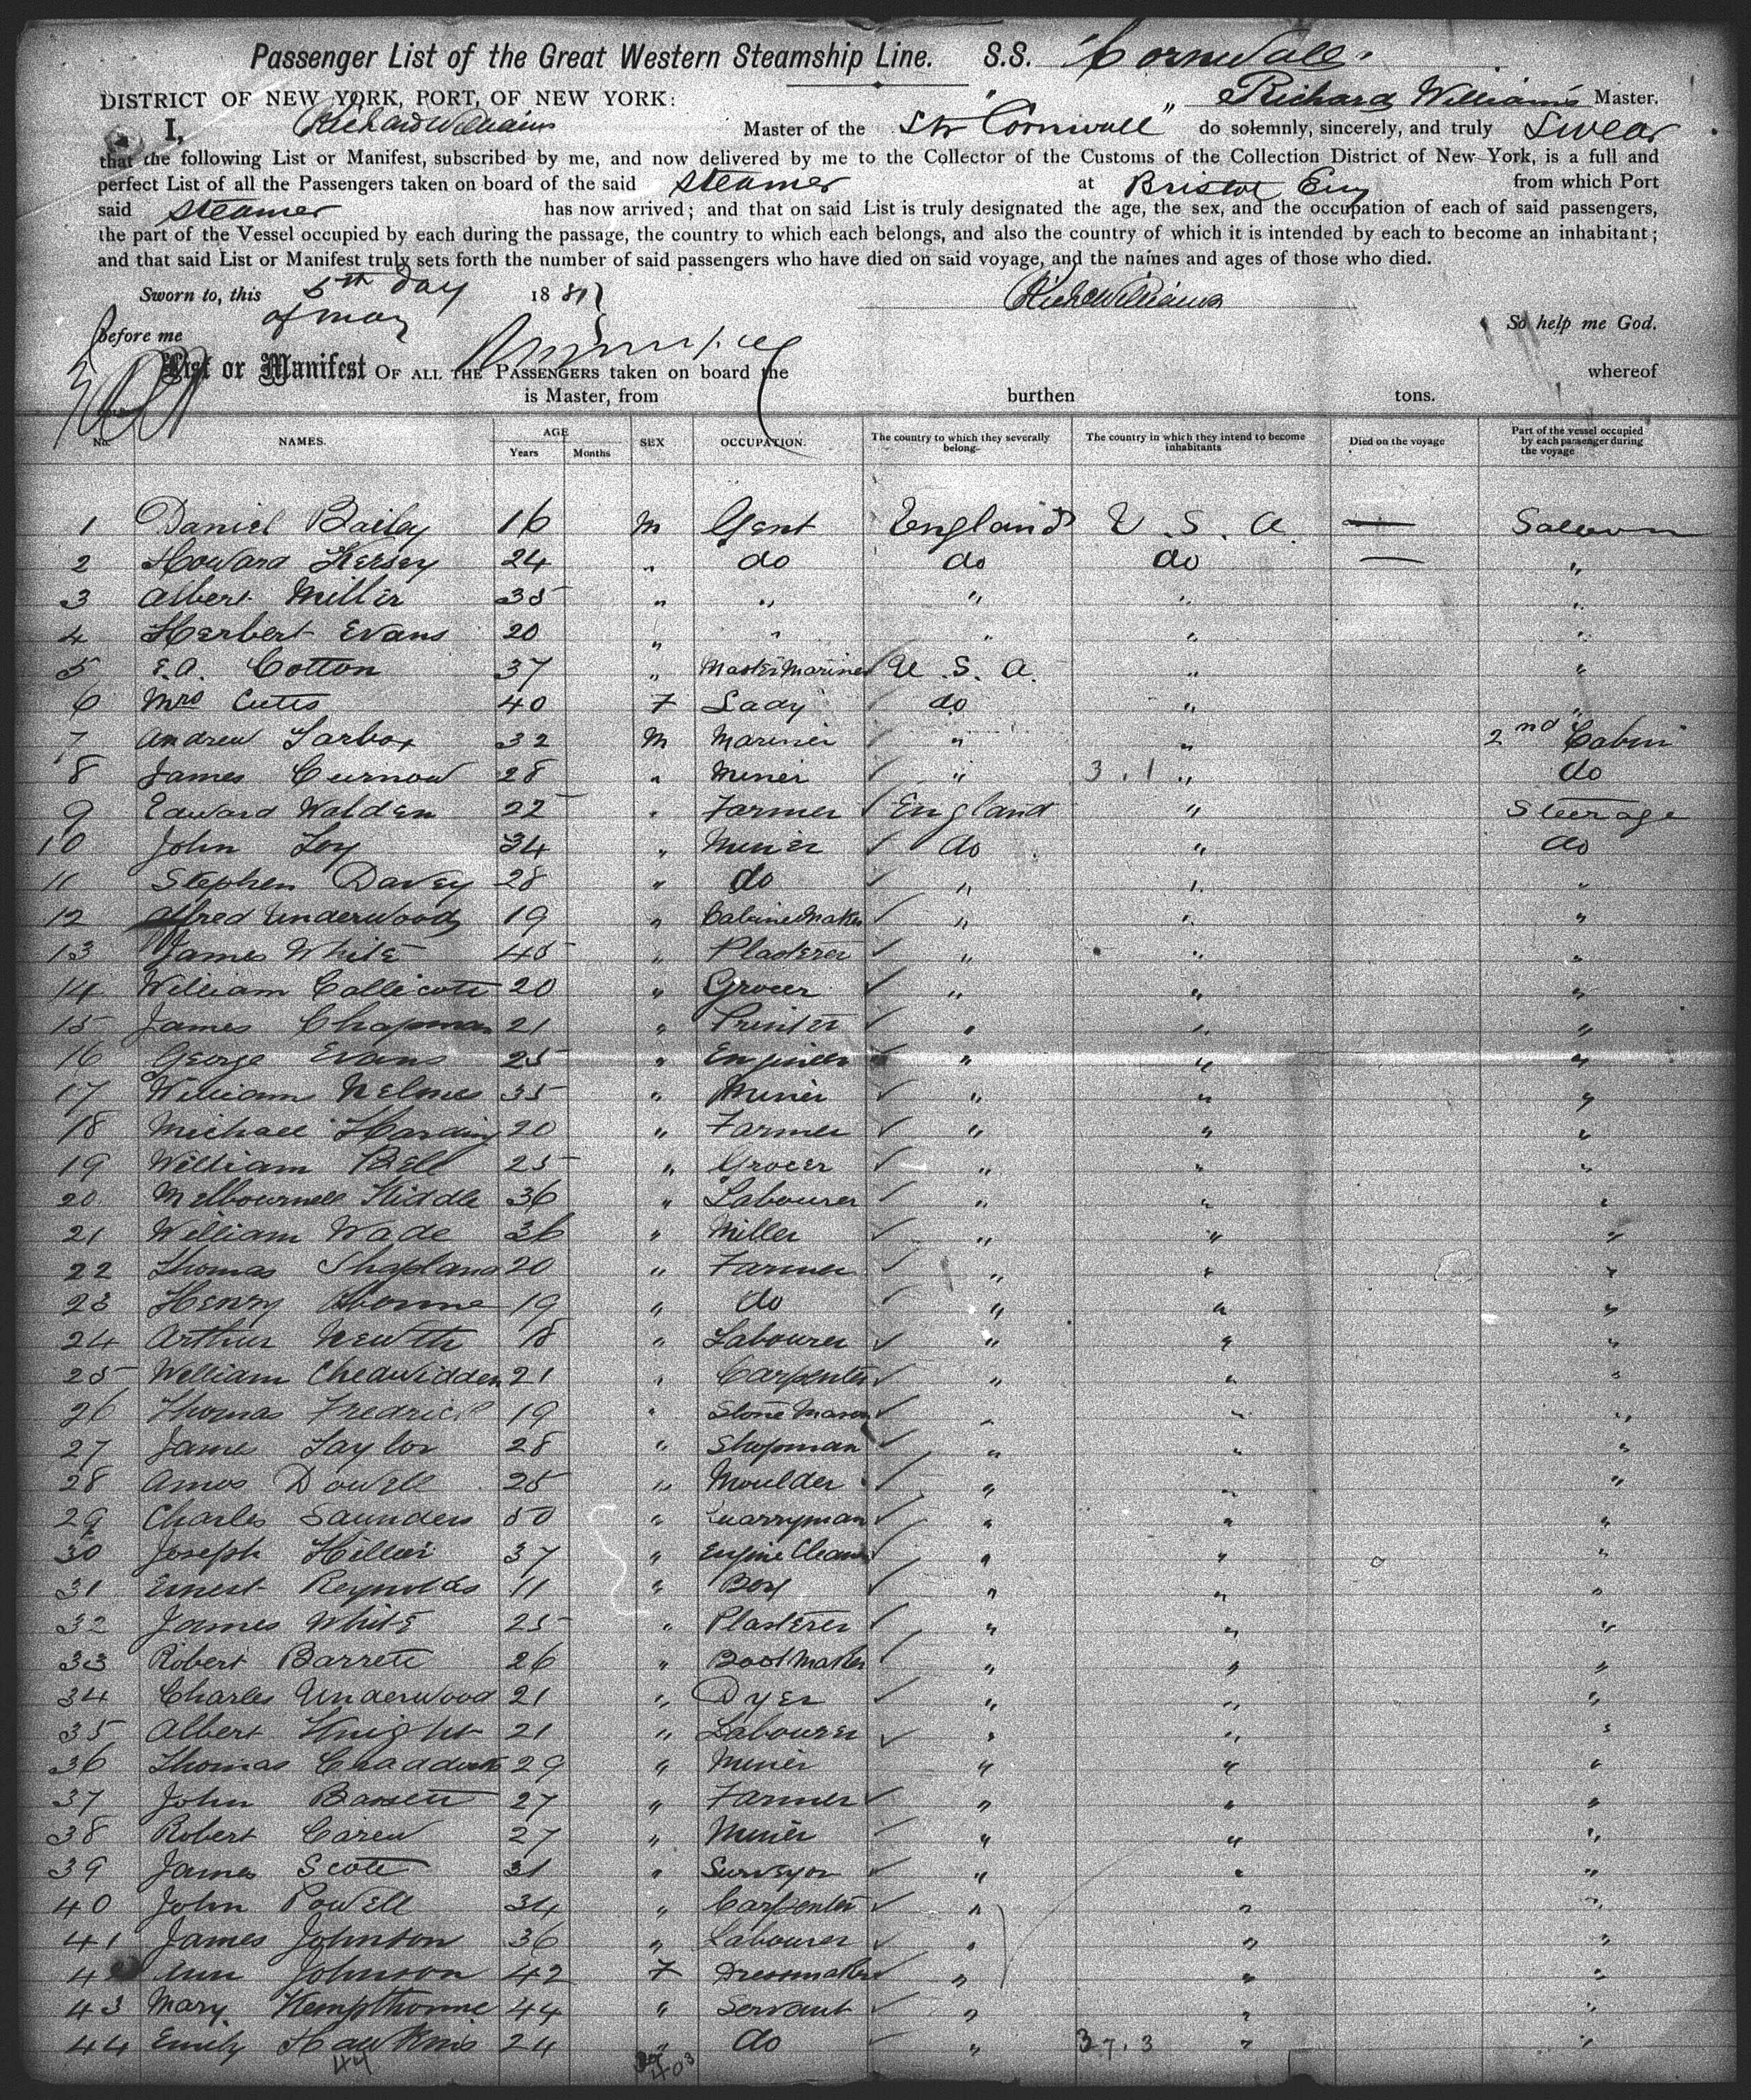 Passenger List of the Great Western Steamship Line. S.S. "Cornwall"
DISTRICT OF NEW YORK, PORT, OF NEW YORK: Richard Williams Master.
I, Richard Williams Master of the Str "Cornwall" do solemnly, sincerely, and truly Swear
that the following List or Manifest, subscribed by me, and now delivered by me to the Collector of the Customs of the Collection District of New York, is a full and
perfect List of all the Passengers taken on board of the said Steamer at Bristol Eng from which Port
said Steamer has now arrived; and that on said List is truly designated the age, the sex, and the occupation of each of said passengers,
the part of the Vessel occupied by each during the passage, the country to which each belongs, and also the country of which it is intended by each to become an inhabitant;
and that said List or Manifest truly sets forth the number of said passengers who have died on said voyage, and the names and ages of those who died.
Sworn to, this 5th day 1881 Richd Williams
of may
before me So help me God.
List or Manifest OF ALL THE PASSENGERS taken on board the whereof
is Master, from burthen tons.
No. NAMES. AGE Years Months SEX OCCUPATION. The country to which they severally belong The country in which they intend to become inhabitants Died on the voyage Part of the vessel occupied by each passenger during the voyage
1 Daniel Bailey 16 M Gent England U.S.A. — Saloon
2 Howard Kersey 24 " do do do — "
3 Albert Miller 35 " " " " "
4 Herbert Evans 20 " " " " "
5 E.A. Cotton 37 " Master Mariner U.S.A. " "
6 Mrs Cutts 40 F Lady do " "
7 Andrew Tarbox 32 M Mariner " " 2nd Cabin
8 James Curnow 28 " Miner " 3.1 " do
9 Edward Walden 22 " Farmer England " Steerage
10 John Loy 34 " Miner do " do
11 Stephen Davey 28 " do " " "
12 Alfred Underwood 19 " Cabinet Maker " " "
13 James White 45 " Plasterer " " "
14 William Collicott 20 " Grocer " " "
15 James Chapman 21 " Printer " " "
16 George Evans 25 " Engineer " " "
17 William Nelmes 35 " Miner " " "
18 Michael Harding 20 " Farmer " " "
19 William Bell 25 " Grocer " " "
20 Melbournell Kiddle 36 " Labourer " " "
21 William Wade 36 " Miller " " "
22 Thomas Shapland 20 " Farmer " " "
23 Henry 19 " do " " "
24 Arthur Newth 18 " Labourer " " "
25 William Chedwidden 21 " Carpenter " " "
26 Thomas Fredrick 19 " Stone Mason " " "
27 Jame Taylor 28 " Shopman " " "
28 Amos Dowell 25 " Moulder " " "
29 Charles Saunders 50 " Quarryman " " "
30 Joseph Hillier 37 " Engine Cleaner " " "
31 Ernest Reynolds 11 " Boy " " "
32 James White 25 " Plasterer " " "
33 Robert Barrett 26 " Boot Maker " " "
34 Charles Underwood 21 " Dyer " " "
35 Albert Knight 21 " Labourer " " "
36 Thomas 29 " Miner " " "
37 John Bassett 27 " Farmer " " "
38 Robert Carew 27 " Miner " " "
39 James Scott 31 " Surveyor " " "
40 John Powell 34 " Carpenter " " "
41 James Johnson 36 " Labourer " " "
42 Ann Johnson 42 F Dressmaker " " "
43 Mary Kempthorne 44 " Servant " " "
44 Emily Hawkins 24 " do " 37.3 " "
44 403